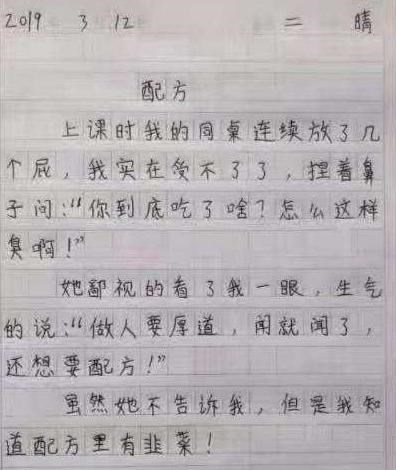 2019 3 12 二 晴
配方
上课时我的同桌连续放了几
个屁，我实在受不了了，捏着鼻
子问：“你到底吃了啥？怎么这样
臭啊！”
她鄙视的看了我一眼，生气
的说：“做人要厚道，闻就闻了，
还想要配方！”
虽然她不告诉我，但是我知
道配方里有韭菜！